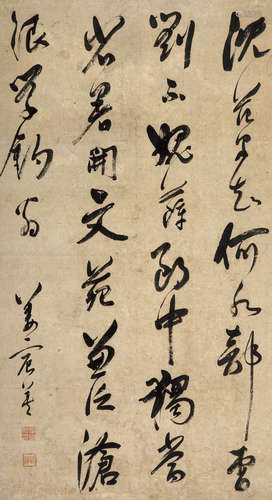 沈范早知何水部曹
劉不媿薛郎中獨當
省署開文苑兼泛滄
浪學釣翁
姜宸英